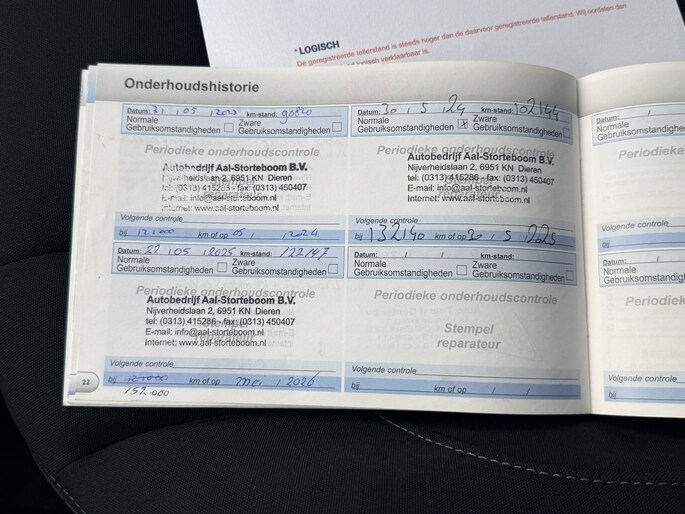 * LOGISCH
De geregistreerde tellerstand is steeds hoger dan de daarvoor geregistreerde tellerstand. Wij oordelen dan
logisch verklaarbaar is.
Onderhoudshistorie
Datum: 31 / 05 / 2023 km-stand: 90820
Normale Gebruiksomstandigheden
Zware Gebruiksomstandigheden
Periodieke onderhoudscontrole
Autobedrijf Aal-Storteboom B.V.
Nijverheidslaan 2, 6951 KN Dieren
tel: (0313) 415286 - fax: (0313) 450407
E-mail: info@aal-storteboom.nl
Internet: www.aal-storteboom.nl
Volgende controle
bij 121.000 km of op 05 / / 2024
Datum: 30 / 5 / 24 km-stand: 102144
Normale Gebruiksomstandigheden
Zware Gebruiksomstandigheden
Periodieke onderhoudscontrole
Autobedrijf Aal-Storteboom B.V.
Nijverheidslaan 2, 6951 KN Dieren
tel: (0313) 415286 - fax: (0313) 450407
E-mail: info@aal-storteboom.nl
Internet: www.aal-storteboom.nl
Volgende controle
bij 132140 km of op 30 / 5 / 2025
Datum: 22 / 05 / 2025 km-stand: 122147
Normale Gebruiksomstandigheden
Zware Gebruiksomstandigheden
Periodieke onderhoudscontrole
Stempel reparateur
Autobedrijf Aal-Storteboom B.V.
Nijverheidslaan 2, 6951 KN Dieren
tel: (0313) 415286 - fax: (0313) 450407
E-mail: info@aal-storteboom.nl
Internet: www.aal-storteboom.nl
Volgende controle
bij km of op mei / 2026
152.000
Datum: / / km-stand:
Normale Gebruiksomstandigheden
Zware Gebruiksomstandigheden
Periodieke onderhoudscontrole
Stempel
reparateur
Volgende controle
bij km of op / /
22
Datum: /
Normale
Gebruiksomstandighed
Periodieke
Volgende controle
bij
Datum: /
Normale
Gebruiksomstandigheden
Periodiek
Volgende controle
bij